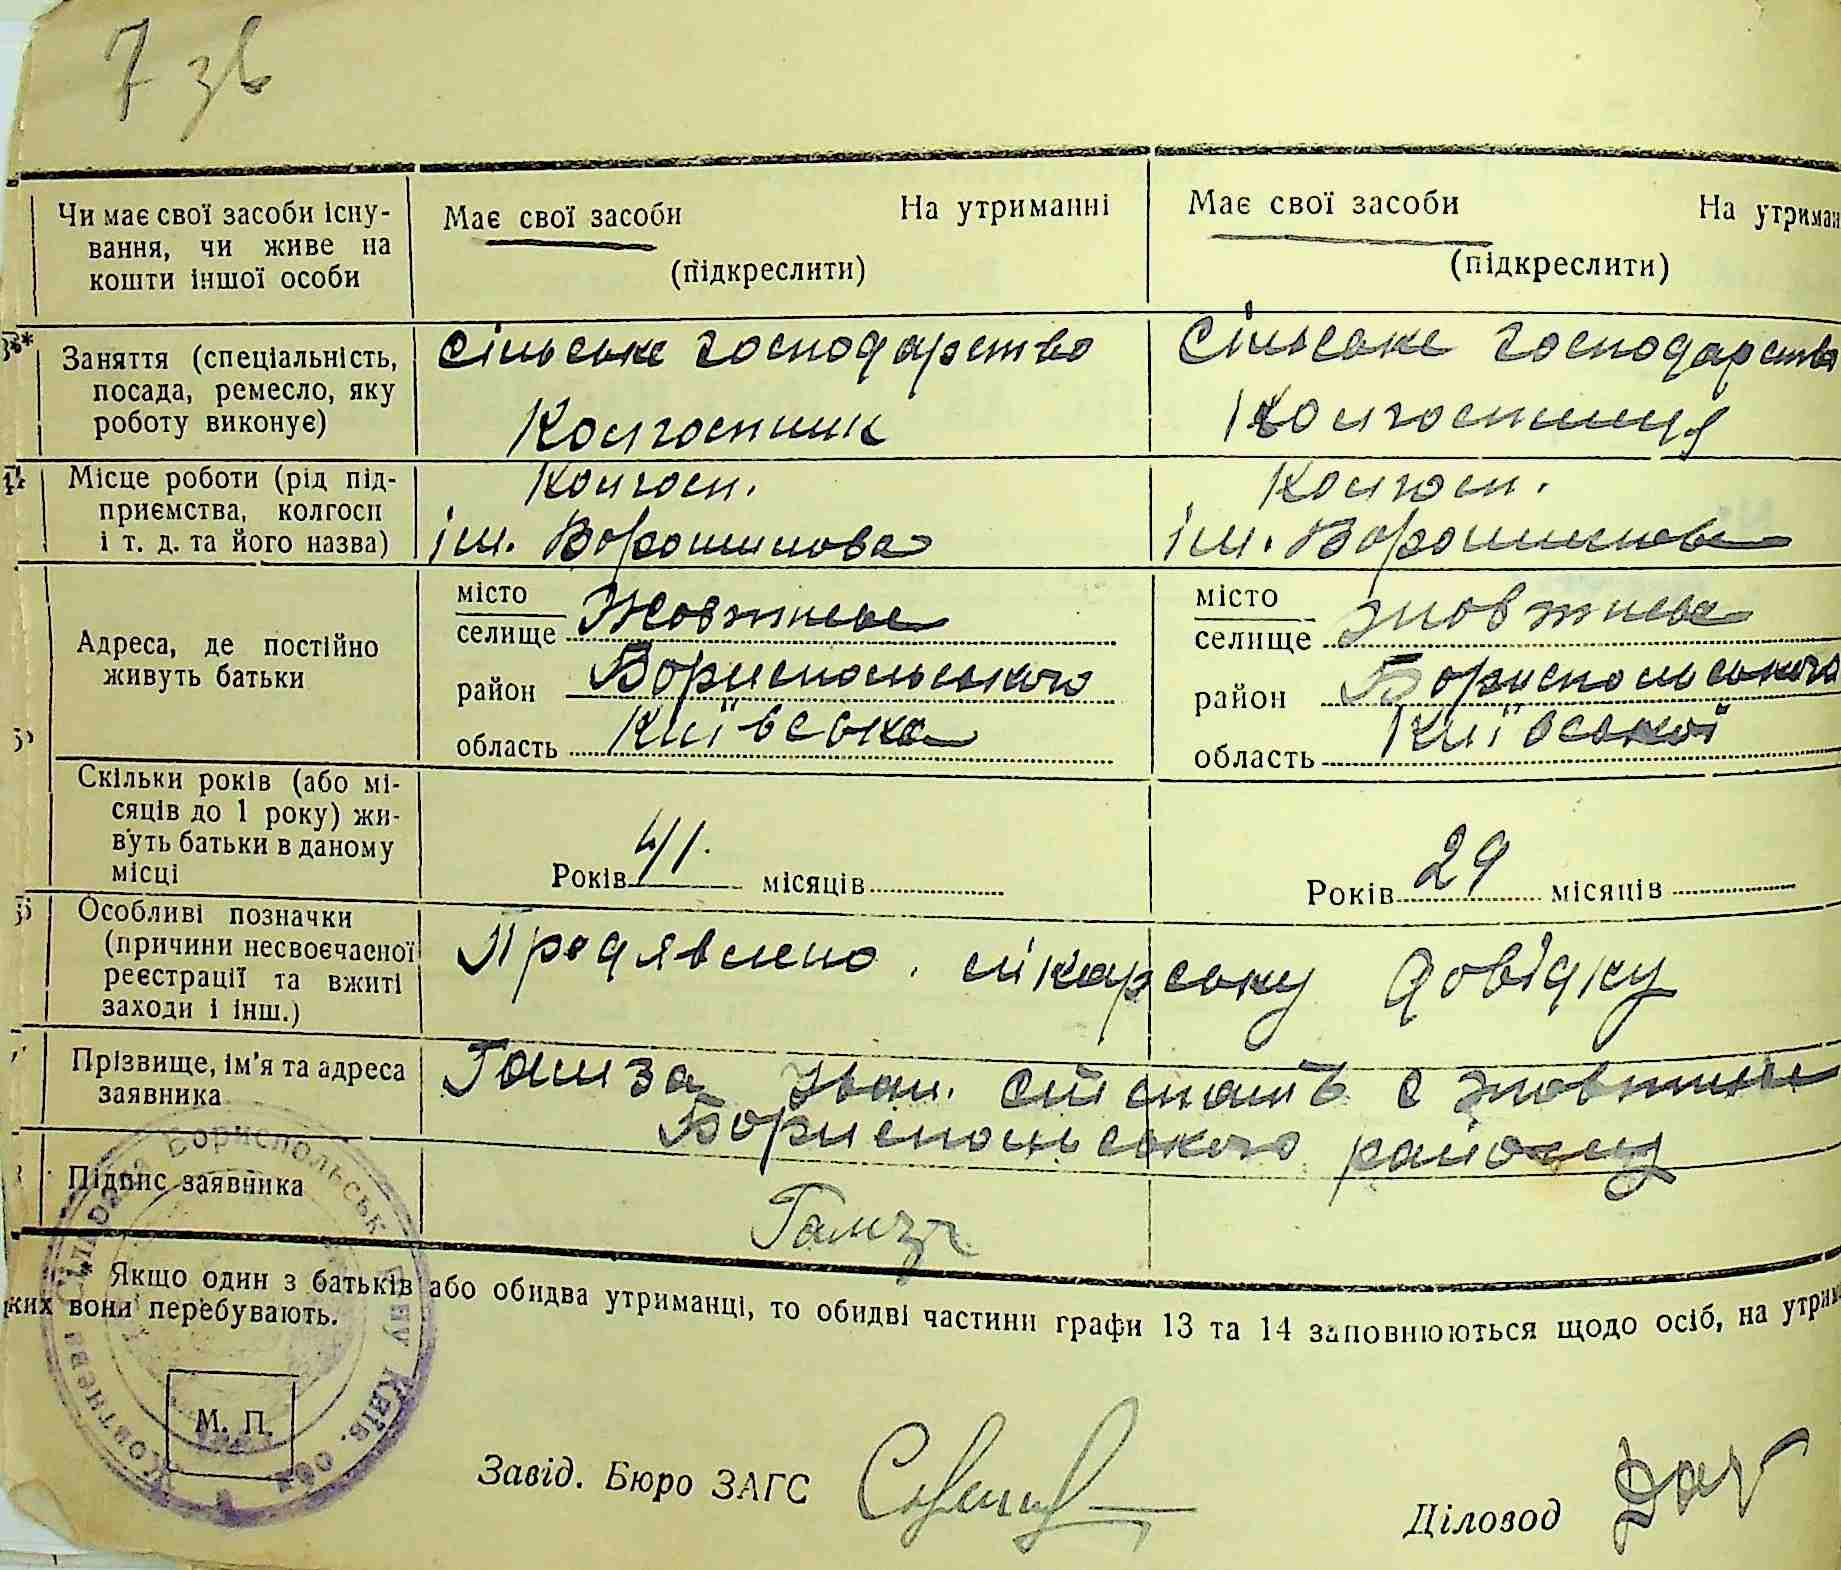 7 зв
Чи має свої засоби існу-
вання, чи живе на
кошти іншої особи
Має свої засоби На утриманні
(підкреслити)
Має свої засоби На утриман
(підкреслити)
Заняття (спеціальність,
посада, ремесло, яку
роботу виконує)
Сільське господарство
Колгоспник
Сільське господарство
Колгоспниця
Місце роботи (рід під-
приємства, колгосп
і т. д. та його назва)
Колгосп.
ім. Ворошилова
Колгосп.
ім. Ворошилова
Адреса, де постійно
живуть батьки
місто
селище Жовтневе
район Бориспольського
область Київська
місто
селище Жовтневе
район Бориспольського
область Київської
Скільки років (або мі-
сяців до 1 року) жи-
вуть батьки в даному
місці
Років 41. місяців
Років 29 місяців
Особливі позначки
(причини несвоєчасної
реєстрації та вжиті
заходи і інш.)
Предявлено лікарську довідку
Прізвище, ім'я та адреса
заявника
Гамза Іван. с Жовтневе
Бориспольського району
Підпис заявника
Гамза
* Якщо один з батьків або обидва утриманці, то обидві частини графи 13 та 14 заповнюються щодо осіб, на утрим
яких вони перебувають.
М. П.
Завід. Бюро ЗАГС
Діловод